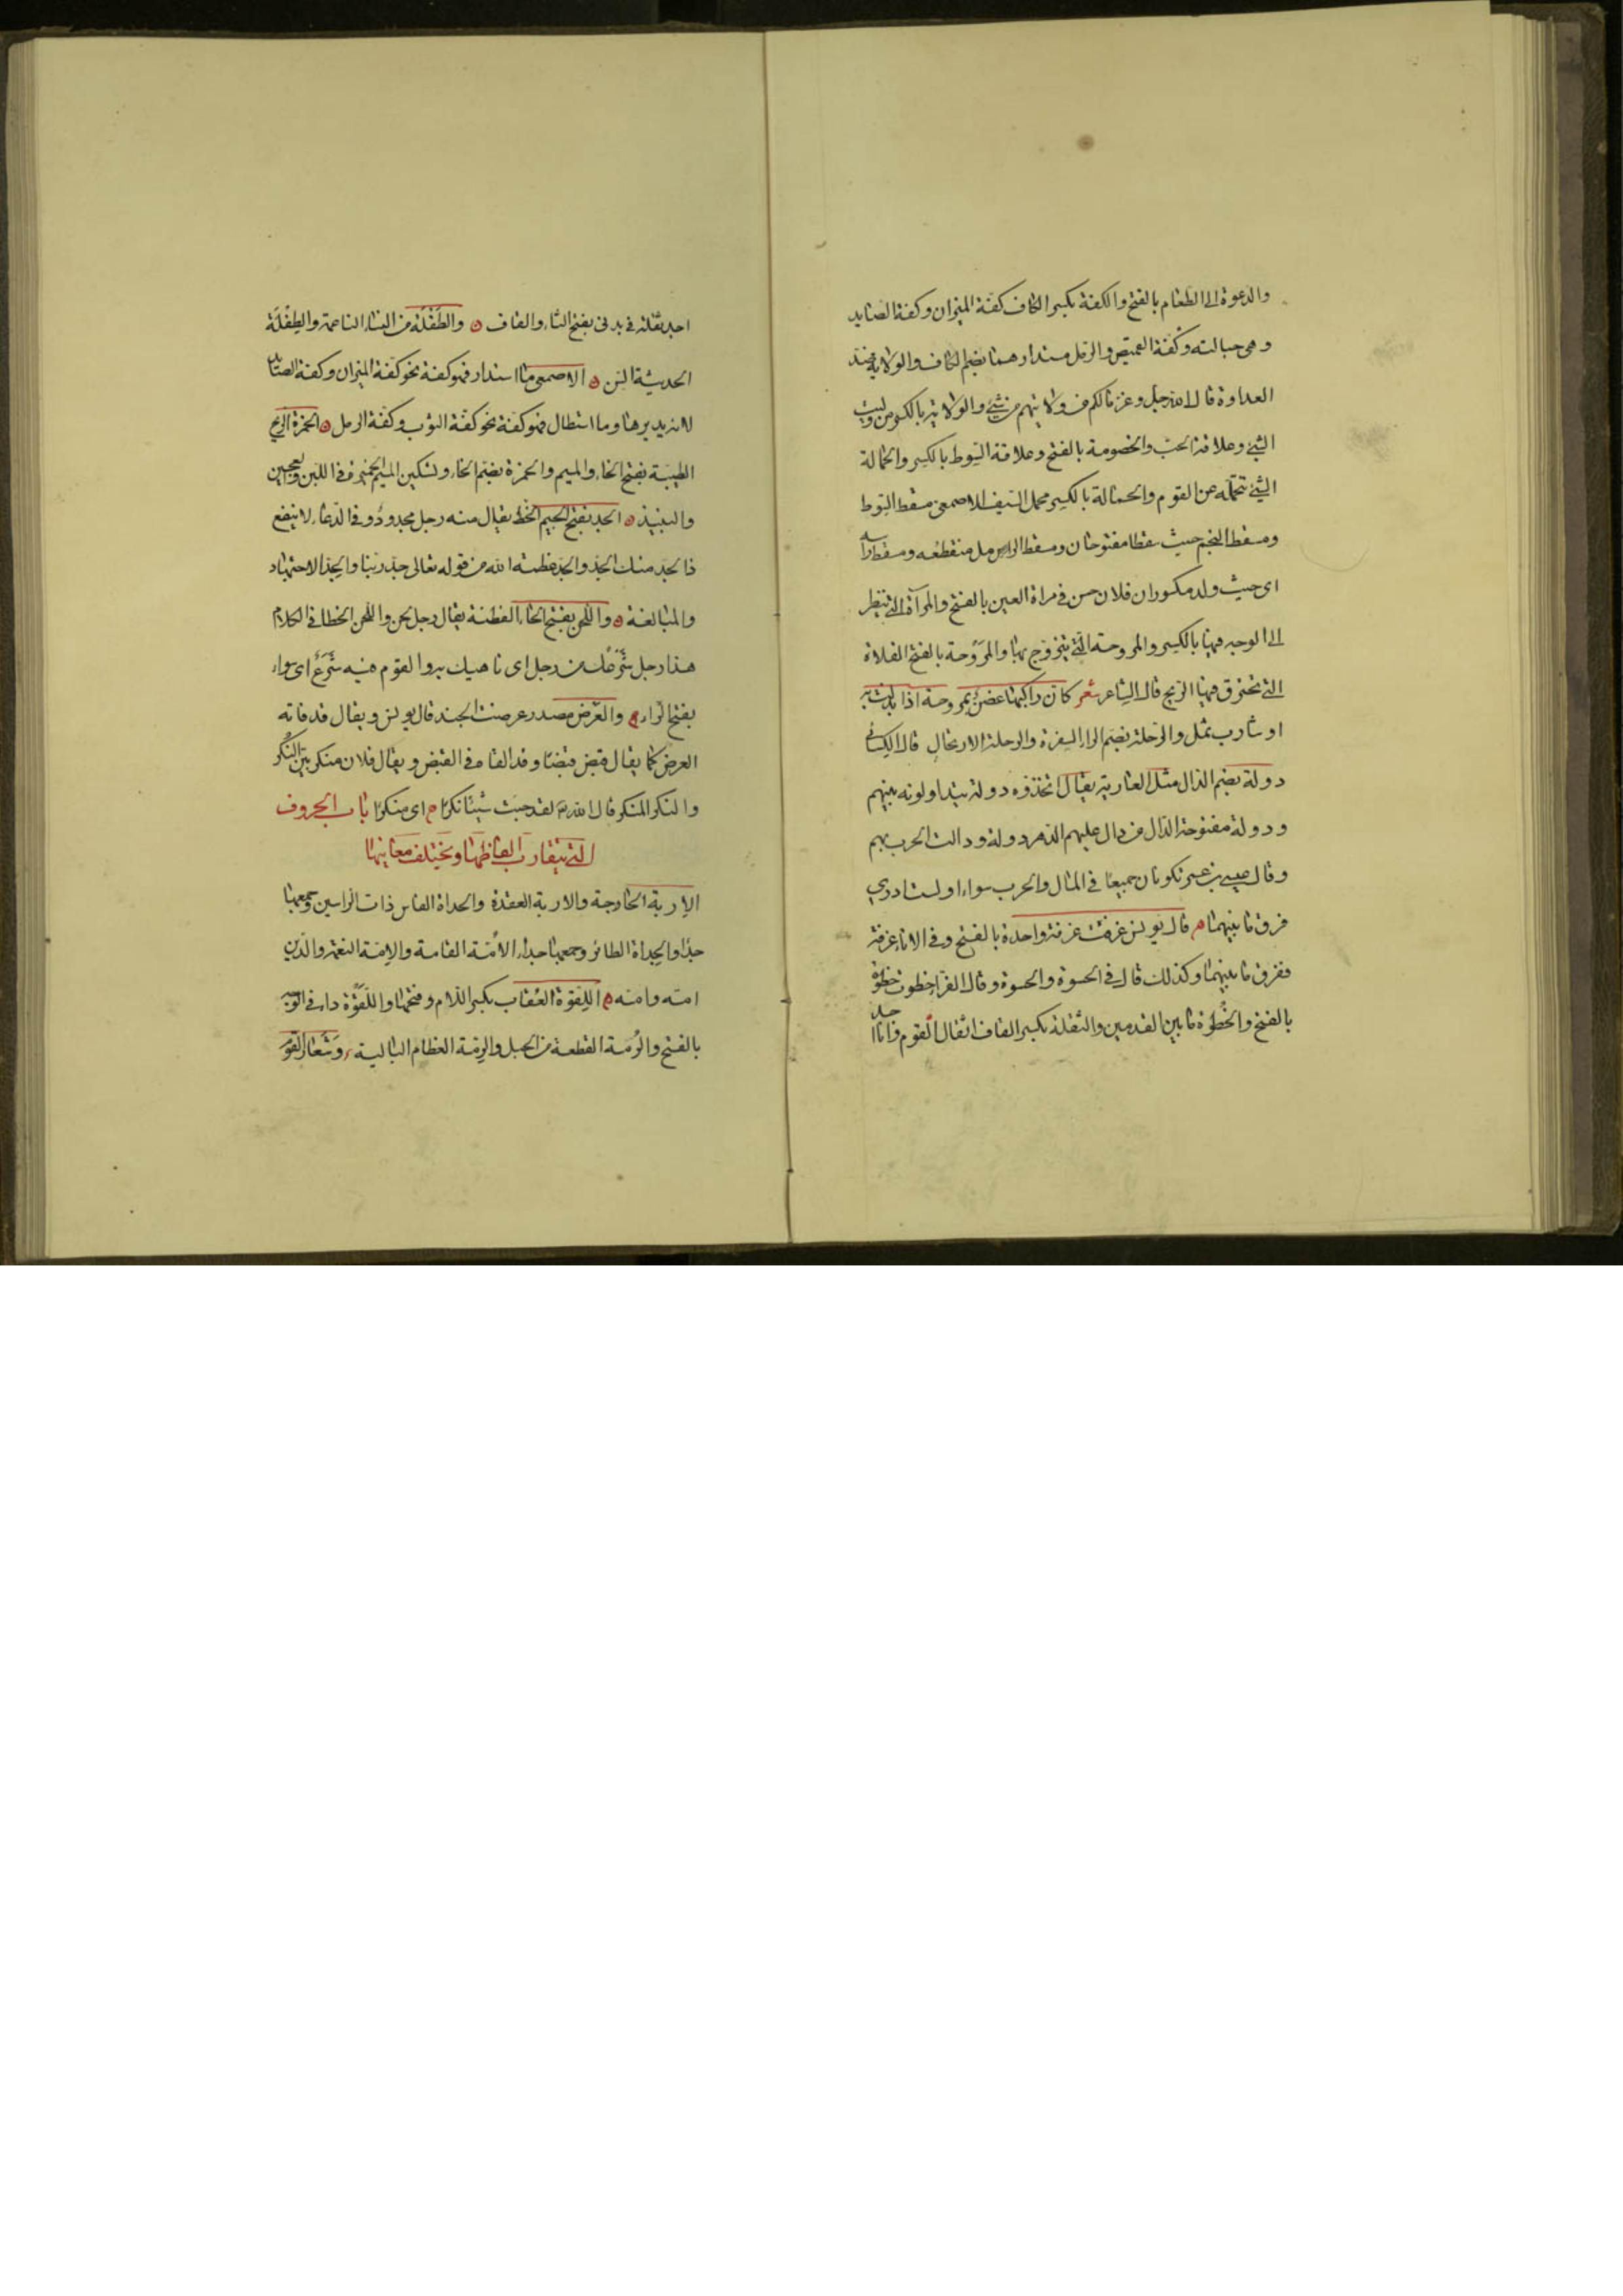 والدعوة الى الطعام بالفتح والكفة بكسر الكاف كفة الميزان وكفة الصايد
وهى حبالته وكفة القميص والرمل مستدارهما بضم الكاف والولاية ضد
العداوة قال الله جل وعز مالكم من ولايتهم من شئ والولاية بالكسر من وليت
الشئ وعلاقة الحب والخصومة بالفتح وعلاقة السوط بالكسر والحمالة
الشئ تتحمله عن القوم والحمالة بالكسر محمل السيف للاصمعى مسقط السوط
ومسقط النجم حيث سقطا مفتوحان ومسقط الرمل منقطعه ومسقط راسه
اى حيث ولد مكسوران فلان حسن فى مراة العين بالفتح والمرآة التى ينظر
الى الوجه فيها بالكسر والمروحة التى يتروح بها والمَرْوحة بالفتح الفلاة
التى تخترق فيها الريح قال الشاعر شعر كان راكبها غصن بمروحة اذا تدلت به
او شارب ثمل والرحلة بضم الراء السفرة والرحلة الارتحال قال الكسائى
دولة بضم الدال مثل العارية يقال اتخذوه دولة يتداولونه بينهم
ودولة مفتوحة الدال من دال عليهم الدهر دولة ودالت الحرب بهم
وقال عيسى بن عمر تكونان جميعا فى المال والحرب سواء ولست ادرى
فرق ما بينهما قال يونس غرفت غرفة واحدة بالفتح وفى الاناء غرفة
ففرق ما بينهما وكذلك قال فى الحسوة والحسوة وقال الفرا خطوت خطوة
بالفتح والخُطوة ما بين القدمين والثقلة بكسر القاف اثقال القوم وانا اجد
اجد ثقلة فى بدنى بفتح الثاء والقاف والطَفْلة من النساء الناعمة والطِفلة
الحديثة السن الاصمعى ما استدار فهو كفة نحو كفة الميزان وكفة الصائد
لانه يديرها وما استطال فهو كفة نحو كفة الثوب وكفة الرمل الخمرة الريح
الطيبة بفتح الخاء والميم والخمرة بضم الخاء وتسكين الميم الخميرة فى اللبن والعجين
والنبيذ الجد بفتح الجيم الحظ يقال منه رجل مجدود وفى الدعاء لا ينفع
ذا الجد منك الجد والجد عظمة الله من قوله تعالى جد ربنا والجد الاجتهاد
والمبالغة واللحن بفتح الحاء الفطنة يقال رجل لحن واللحن الخطا فى الكلام
هذا رجل شرعك من رجل اى ناهيك به والقوم فيه شَرَعٌ اى سواء
بفتح الراء والعَرْض مصدر عرضت الجند قال يونس ويقال قد فاته
العرض كما يقال قبض قبضا وقد القاه فى القبض ويقال فلان منكر بيّن النُكر
والنكر المنكر قال الله لقد جئت شيئا نكرا اى منكرا باب الحروف
التى يتقارب الفاظها ويختلف معانيها
الاربة الخارجة والاربة العقدة والحداة الفاس ذات الراسين وجمعها
حدا والحداة الطائر وجمعها حداء الأمّة القامة والامّة النعمة والدين
امته وامته اللِقوة العُقاب بكسر اللام وفتحها واللَقْوة داء فى الوجه
بالفتح والرُمة القطعة من الحبل والرِمة العظام البالية وشعار القوم